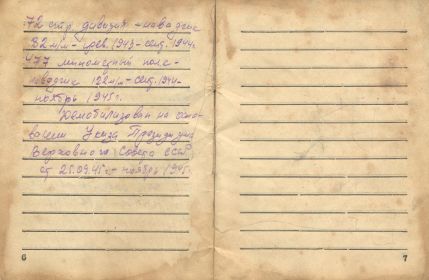 72 стр дивизия – наводчик
82 м/м – февр. 1943 – сент. 1944г.
477 минометный полк –
наводчик 122 м/м – сент. 1944 –
ноябрь 1945 г.
Демобилизован на осно-
вании Указа Президиума
Верховного Совета СССР
от 25.09.45 г. – ноябрь 1945г.
6
7